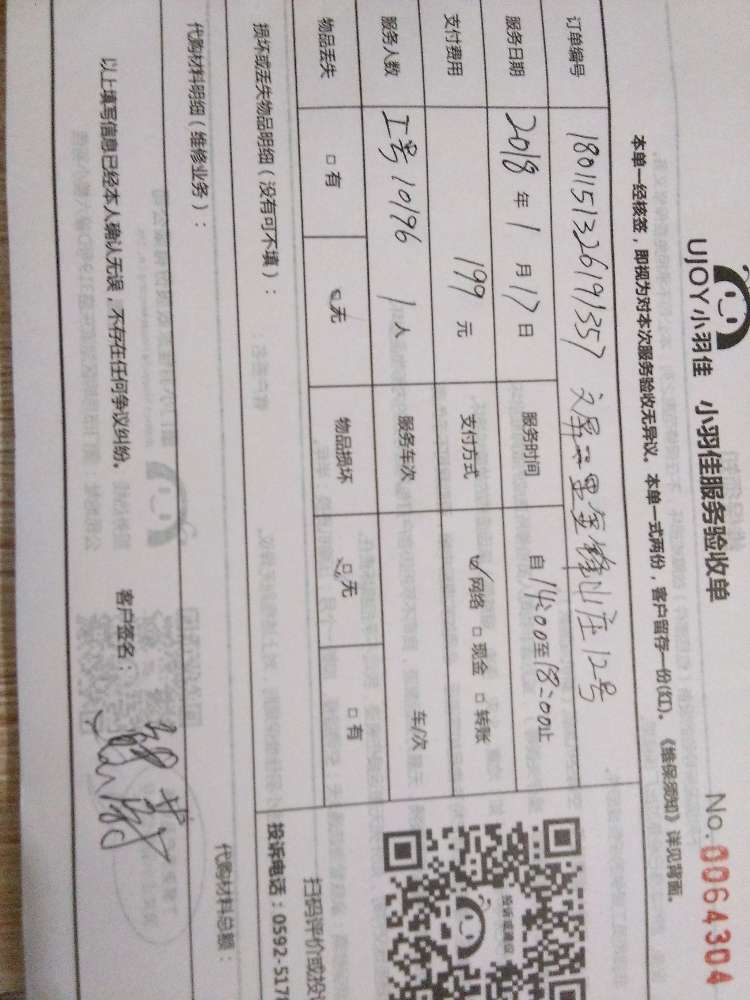 UJOY小羽佳 小羽佳服务验收单 No. 0064304
本单一经核签，即视为对本次服务验收无异议。本单一式两份，客户留存一份(红)。《维保须知》详见背面。
订单编号 1801151326191357 文屏
山庄12号
服务日期 2018 年 1 月 17 日 服务时间 自 14:00 至 18:00 止
支付费用 199 元 支付方式 ☑网络 □现金 □转账
服务人数 工号10196 1 人 服务车次 车/次
物品丢失 □有 ☑无 物品损坏 ☑无 □有
投诉或建议
扫码评价或投
损坏或丢失物品明细（没有可不填）： 投诉电话：0592-517
代购材料明细（维修业务）： 代购材料总额：
以上填写信息已经本人确认无误，不存在任何争议纠纷。 客户签名：